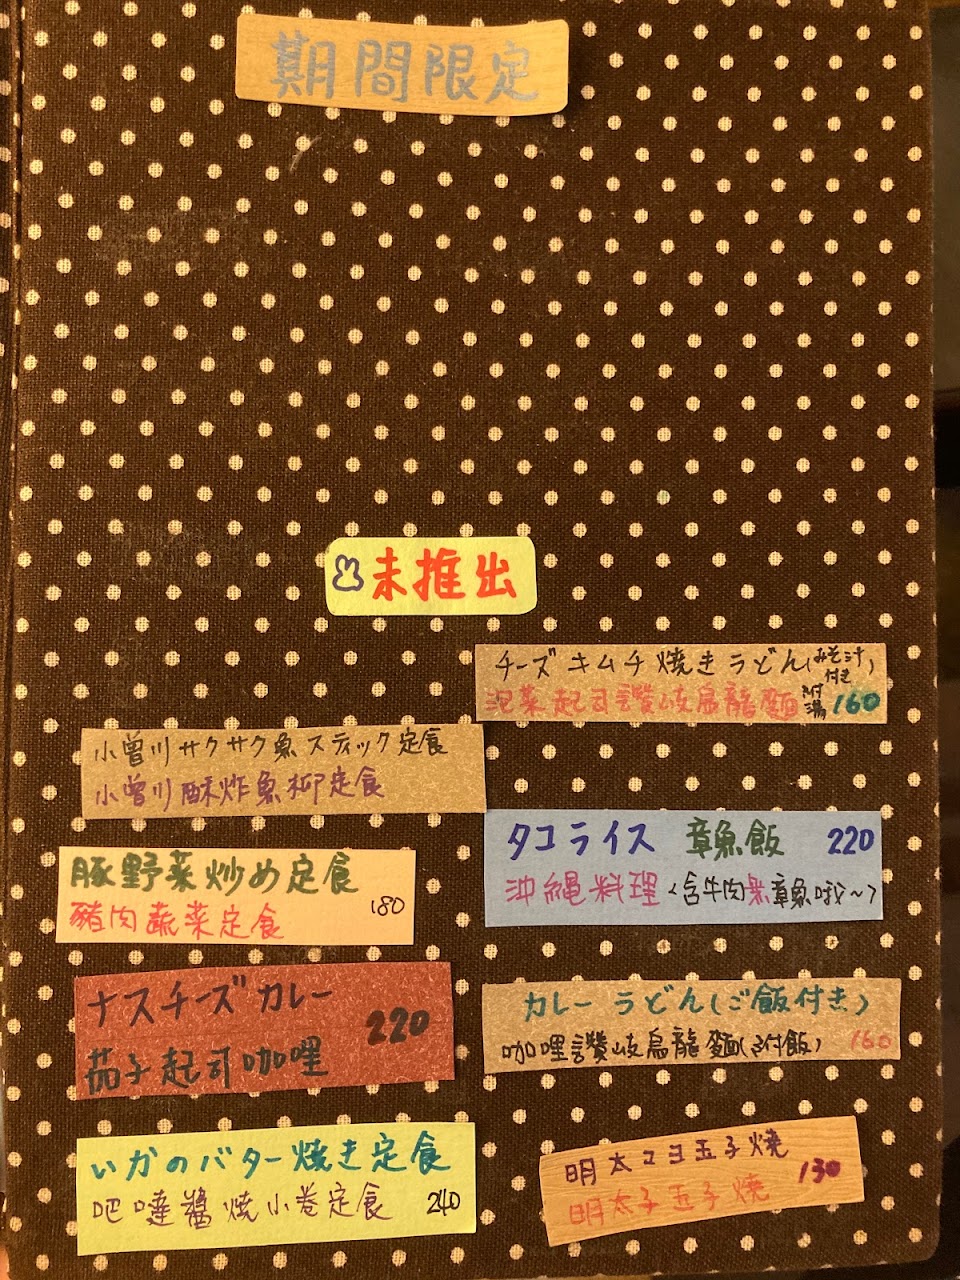 期間限定
未推出
チーズキムチ焼きうどん(みそ汁付き)
泡菜起司讚岐烏龍麵 附湯 160
小曽川サクサク魚スティック定食
小曽川酥炸魚柳定食
タコライス 章魚飯 220
沖縄料理<含牛肉無章魚哦~>
豚野菜炒め定食
豬肉蔬菜定食 180
ナスチーズカレー
茄子起司咖哩 220
カレーうどん(ご飯付き)
咖哩讚岐烏龍麵(附飯) 160
いかのバター焼き定食
吧噠醬燒小卷定食 240
明太マヨ玉子焼
明太子玉子燒 130